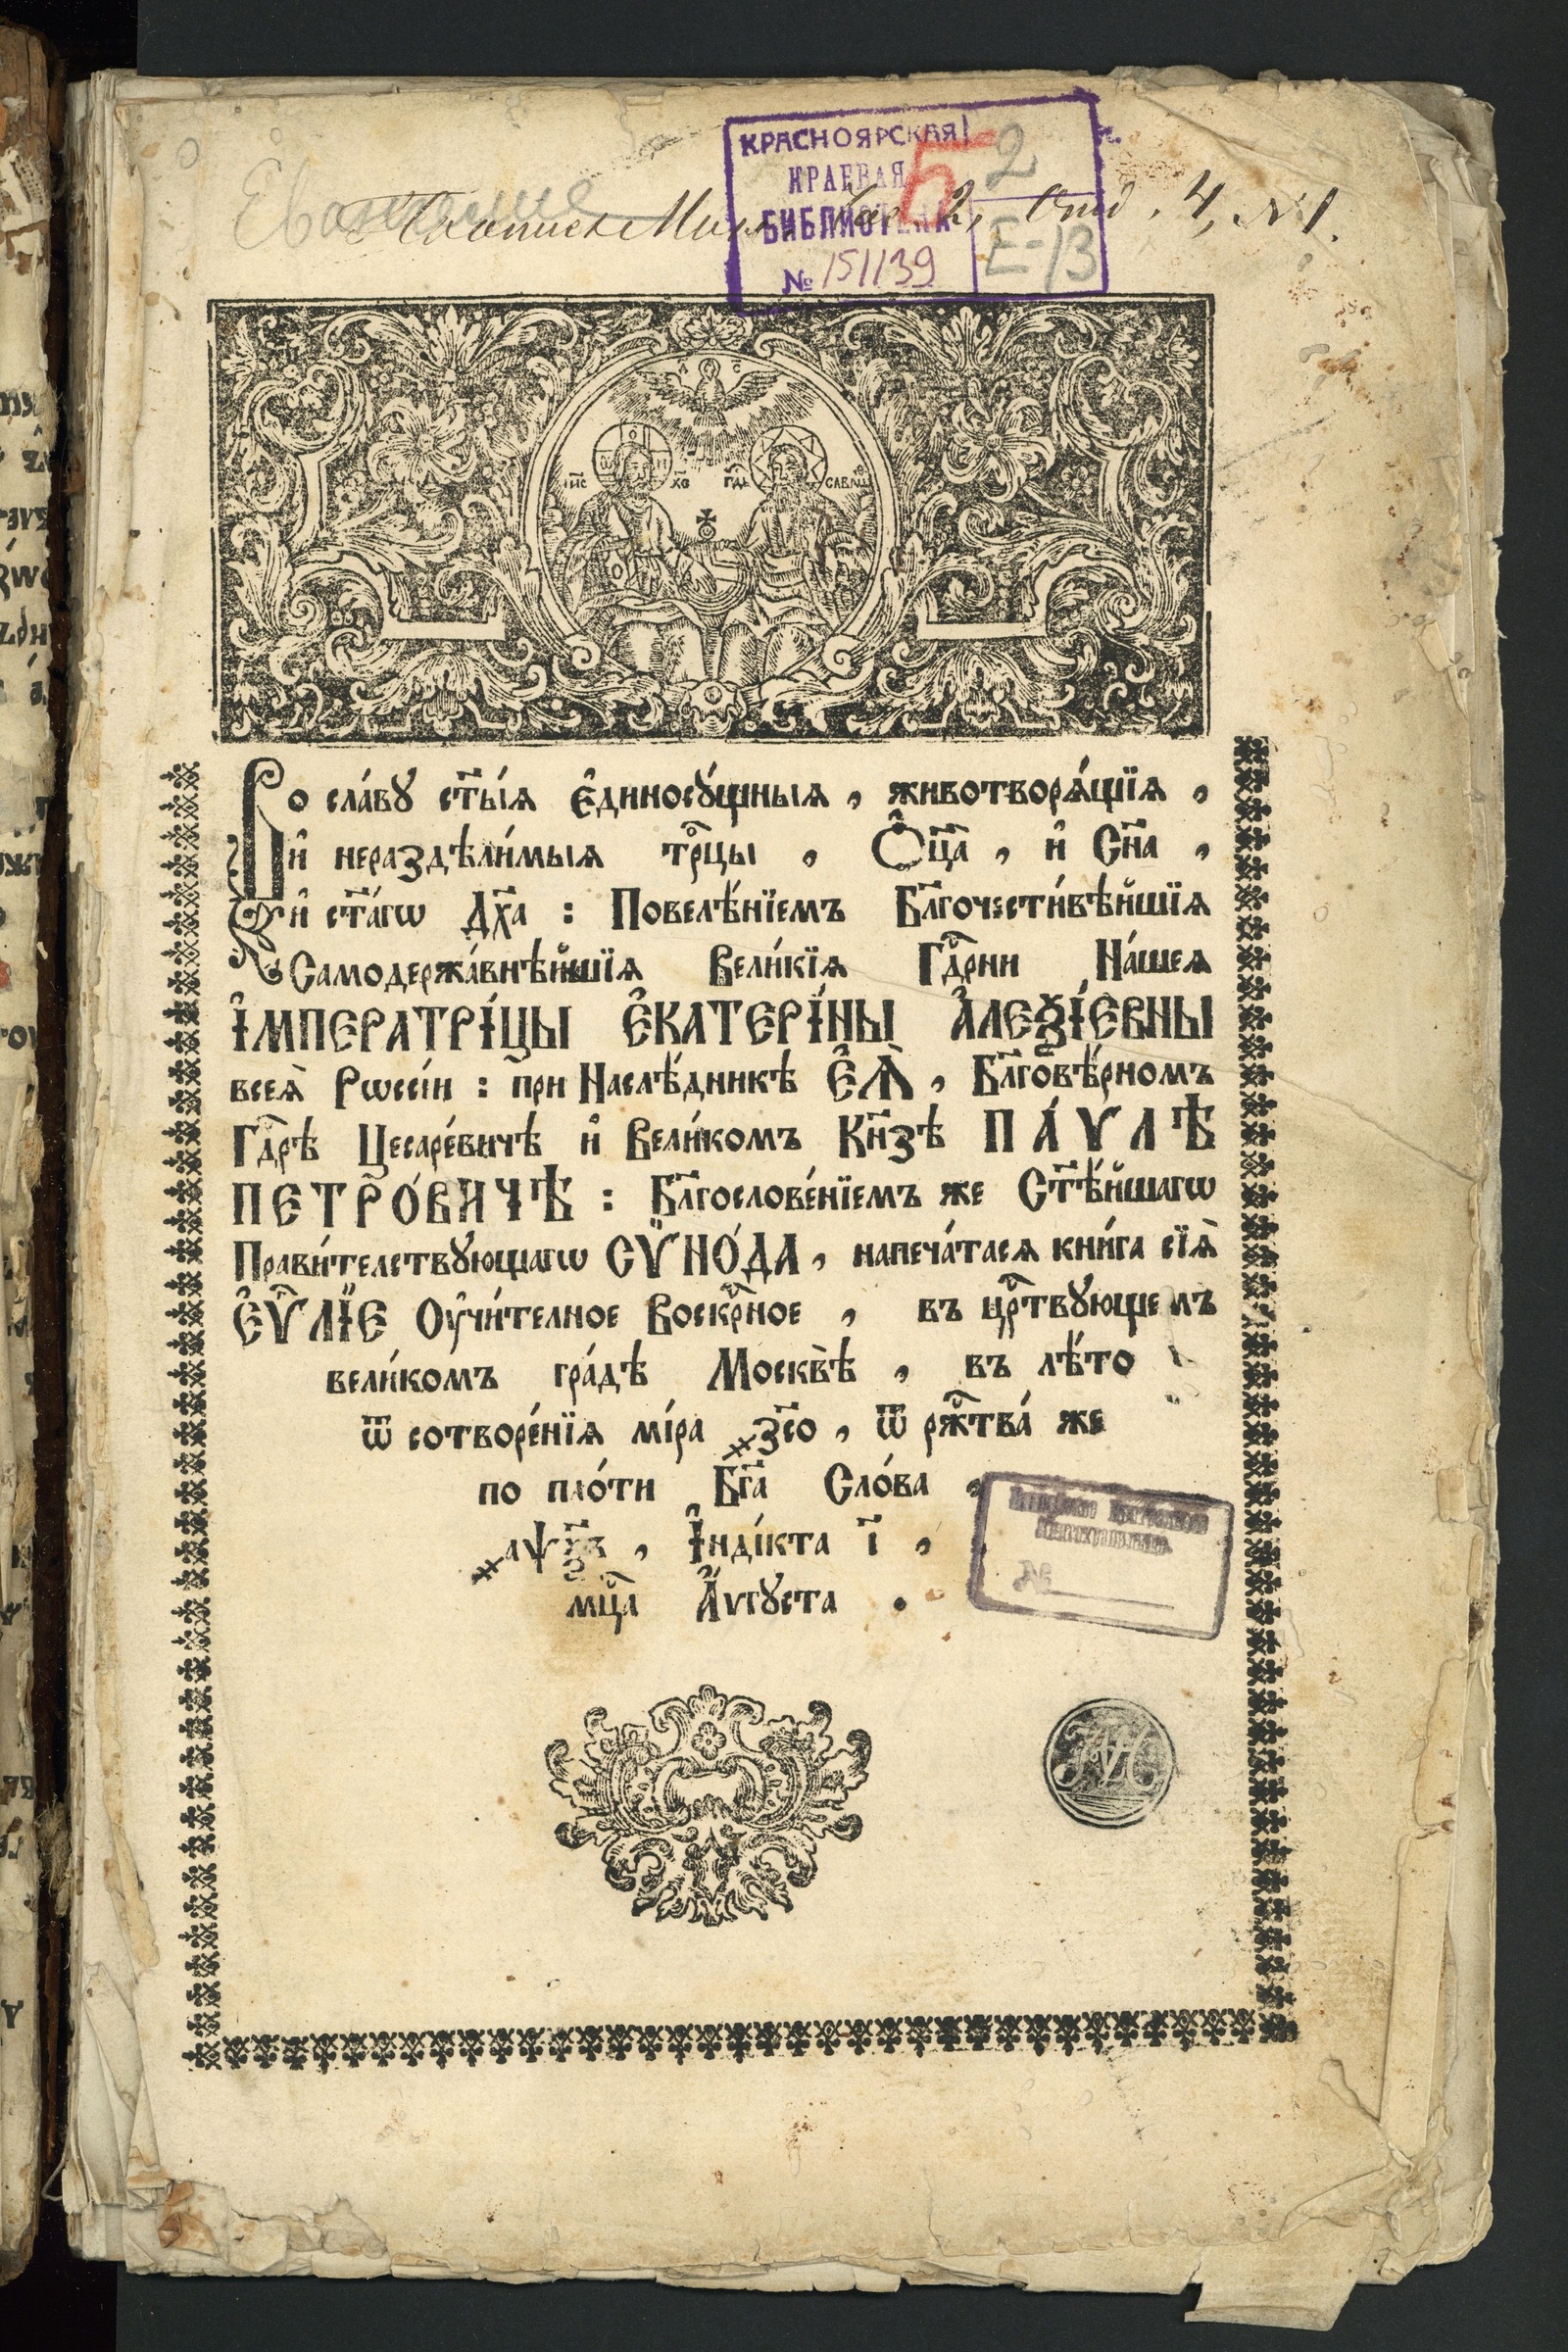 КРАСНОЯРСКАЯ
КРАЕВАЯ
БИБЛИОТЕКА
№ 151139
Б 2
Е-13
Отд. 4, №1.
і҃ис х҃с г҃дь саваѡ
Во сла́вꙋ ст҃ы́ѧ є҆диносꙋ́щныѧ , животворѧ́щїѧ ,
и҆ нераздѣли́мыѧ трⷪ҇цы , Ѻ҆ц҃а̀ , и҆ Сн҃а ,
и҆ ст҃а́гѡ Дх҃а : Повелѣ́нїемъ Бл҃гочести́вѣйшїѧ
Самодержа́внѣйшїѧ Вели́кїѧ Гдⷭ҇рни На́шеѧ
І҆МПЕРАТРІ́ЦЫ Є҆КАТЕРІ́НЫ А҆ЛЕѮІ́ЕВНЫ
всеѧ̀ Рѡссі́и : при Наслѣ́дникѣ Є҆Ѧ̀ , Бл҃говѣ́рномъ
Гдⷭ҇рѣ Цесаре́вичѣ и҆ Вели́комъ Кн҃зѣ ПА́ѴЛѢ
ПЕТРО́ВИЧѢ : Бл҃гослове́нїемъ же Ст҃ѣ́йшагѡ
Прави́телствꙋющагѡ СѴНО́ДА , напеча́тасѧ кни́га сїѧ̀
Є҆Ѵⷢ҇ЛЇЕ Оу҆чи́телное Воскрⷭ҇ное , въ црⷭ҇твꙋющемъ
вели́комъ гра́дѣ Москвѣ̀ , въ лѣ́то
ѿ сотворе́нїѧ мі́ра ҂з҃со , ѿ ржⷭ҇тва́ же
по пло́ти Бг҃а Сло́ва ,
҂аѱѯ҃в , І҆нді́кта і҃ ,
мцⷭ҇а А҆́ѵгꙋста .
№